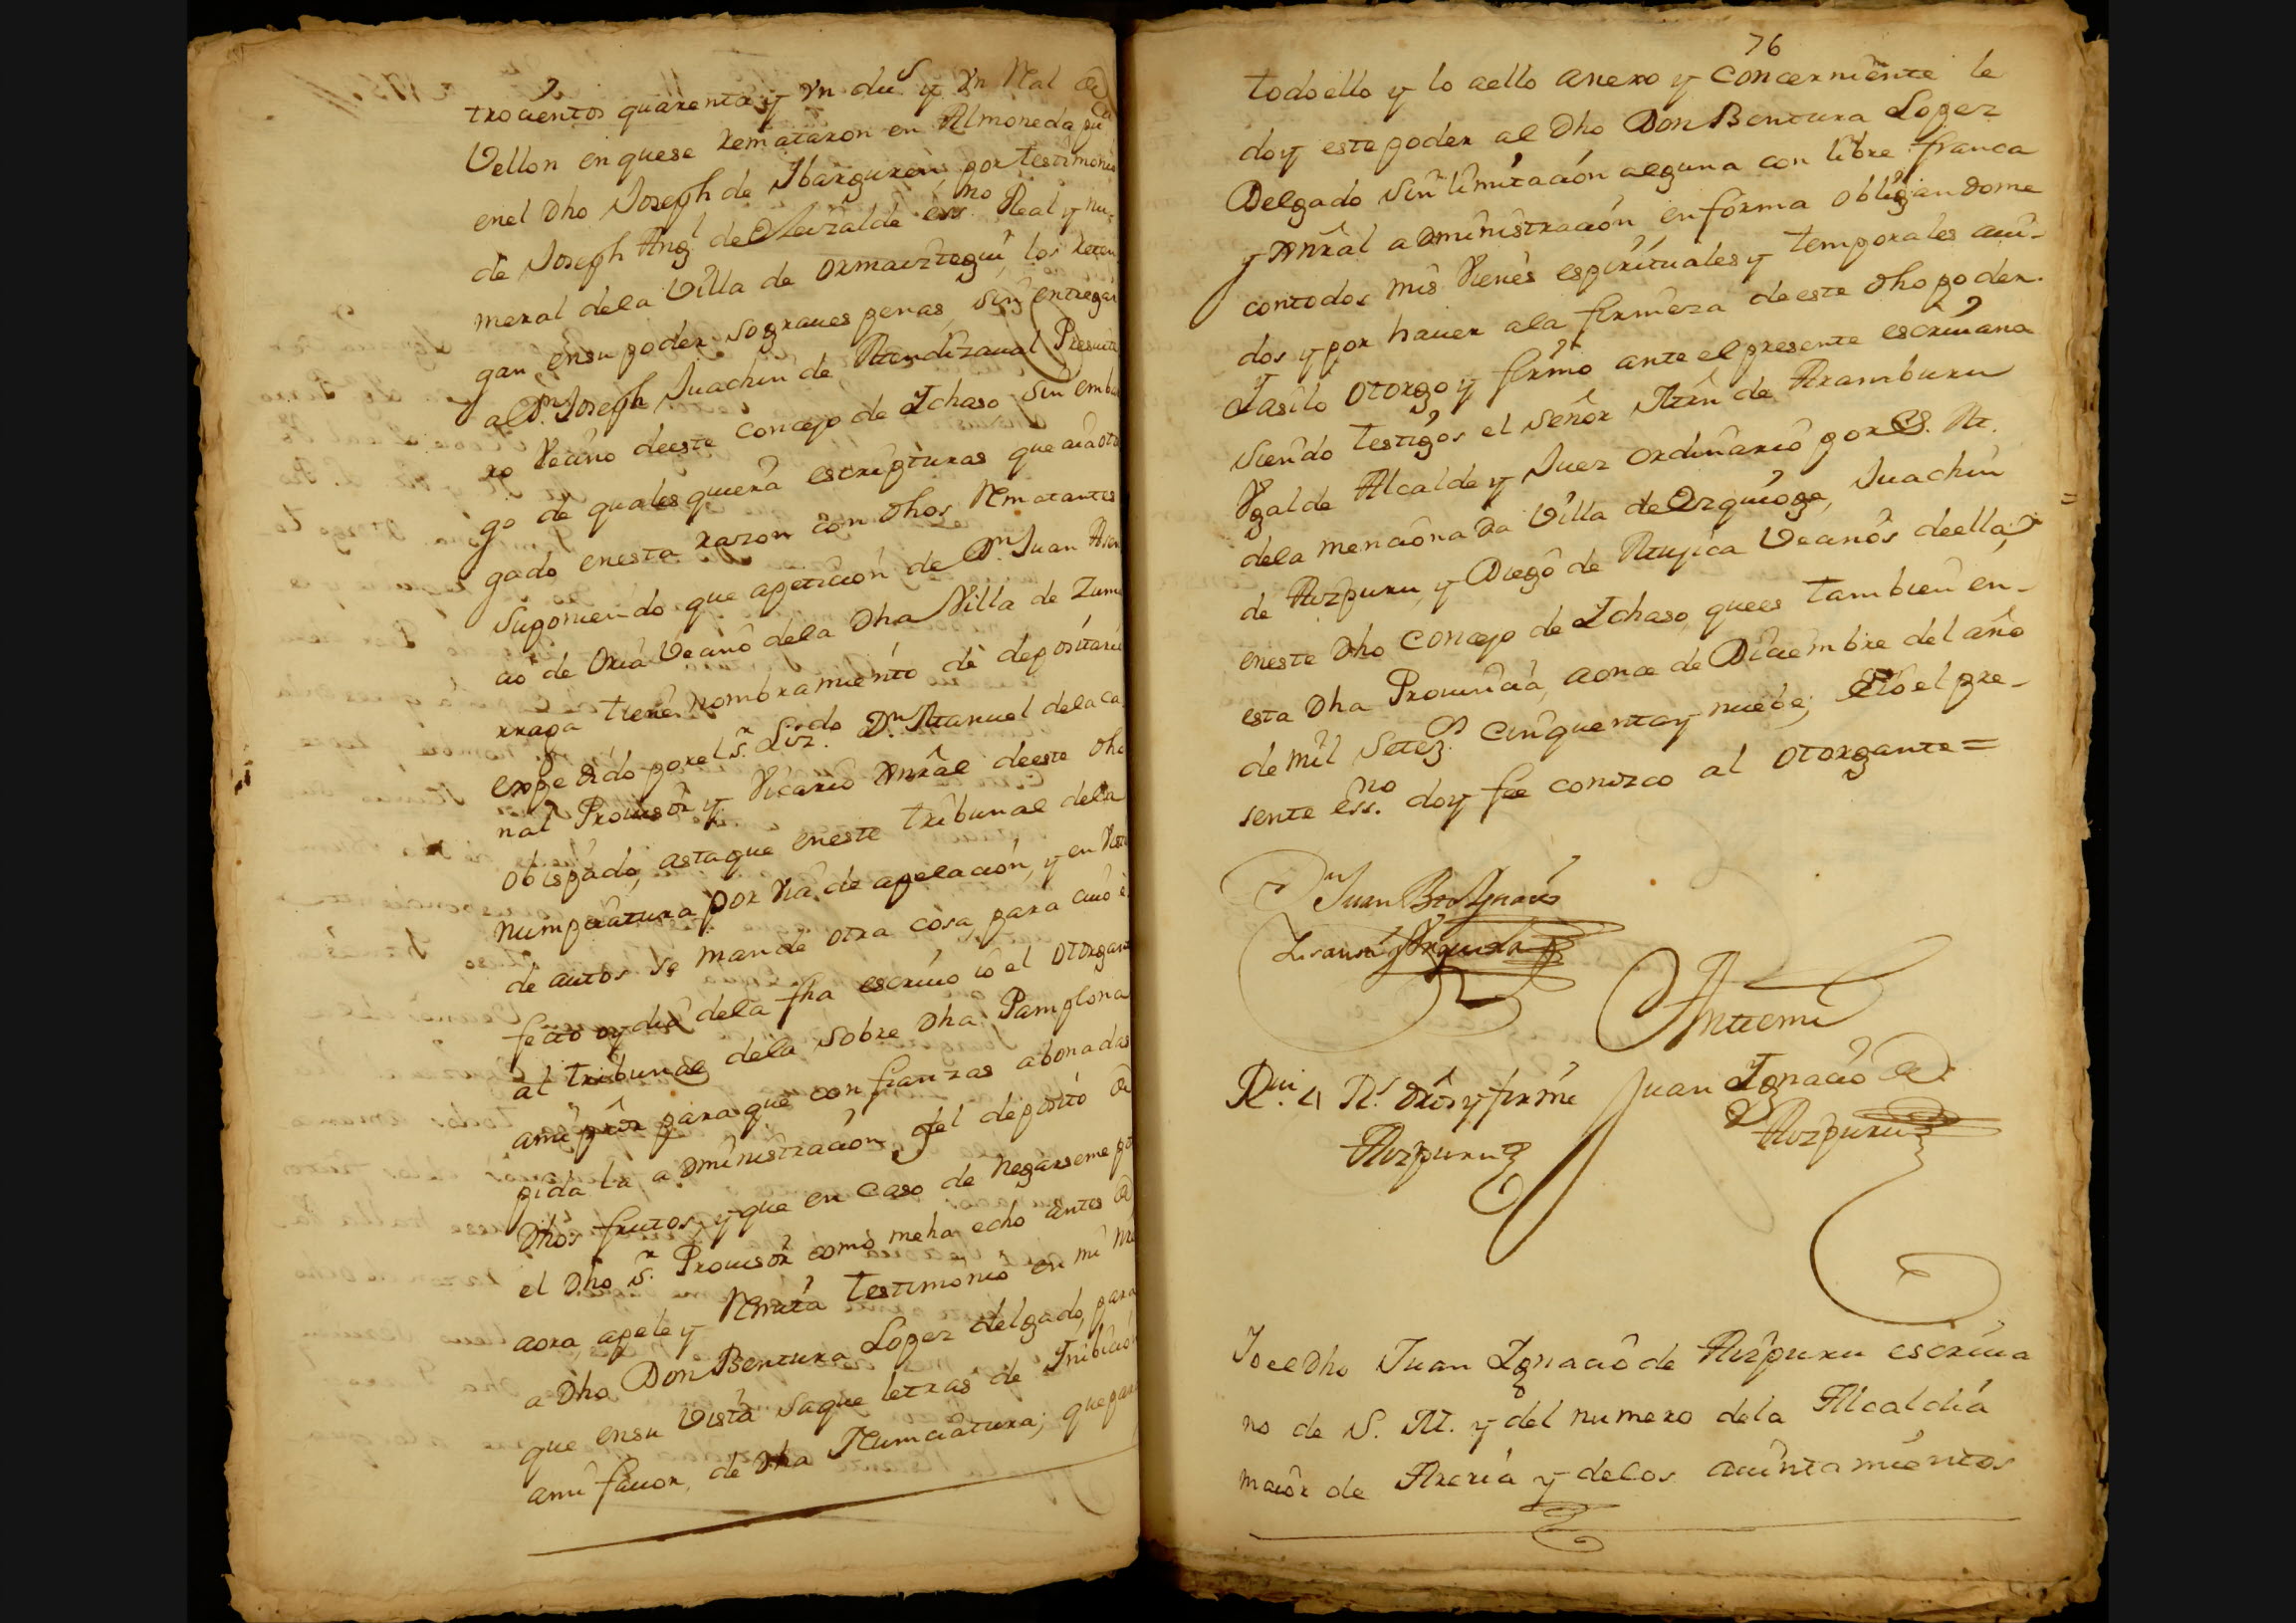 trocientos quarenta y Vn du.s y Vn Real de
Vellon en quese Remataron en Almoneda pu
enel Dho Joseph de Ybarguren, por testimonio
de Joseph Ang.l de ess.no Real y nu-
meral dela Villa de Ormaiztegui, los reten
gan, ensu poder so graues penas, sin entregar
al D.n Joseph Juachin de Mendizaual Presuite
ro Vecino deeste concejo de Ichaso, sin emba
go de quales quiera escripturas que aia oto
gado enesta razon con dhos Rematantes
suponiendo que apeticion de D.n Juan Asen
cio de Oria Vecino dela Dha Villa de Zuma
rraga tiene nombramiento de depositario
expedido porel S.r Liz.do D.n Manuel dela ca
nal Prouisor y Vicario Gnrâl deeste Dho
Obispado, astaque eneste tribunal dela
Numpciatura por Via de apelacion, y en Vista
de autos se mande otra cosa, para cuio e
fecto oy dia dela fha escriuo io el otorgante
al tribunal dela sobre Dha Pamplona
ami para que con fianzas abonadas
pida la administracion del deposito de
Dhos frutos, y que en caso de negarseme po
el Dho S.r Prouisor como meha echo antes de
aora, apele y Remita testimonio en mi nre
a Dho Don Bentura Lopez delgado, para
que ensu Vista saque letras de Inibicion
ami fauor, de Dha Numciatura; que para
76
todo ello y lo aello anexo y concerniente le
doy este poder al Dho Don Bentura Lopez
Delgado sin limitacion alguna con libre franca
y Gnrâl administracion en forma obligandome
contodos mis Vienes espirituales y temporales aui-
dos y por hauer ala firmeza deeste dho poder.
Iasilo otorgo y firmo ante el presente escriuano
siendo testigos el señor Mrn de Aramburu
Ygalde Alcalde y Juez ordinario por S. M.
dela mencionada Villa de Ezquioga, Juachin
de Aizpuru, y Diego de Mujica Vecinos deella,
eneste Dho Concejo de Ichaso, quees tambien en-
esta Dha Prouincia, aonce de Diciembre del año
de mil Setez.s cinquenta y nuebe; Eio el pre-
sente ess.no doy fee conozco al otorgante=
D.n Juan Bap Ygnacio
Antemi
R.ui 4 R.s dros y firme
Juan Ignacio de
Aizpuru
Aizpuru
Io el Dho Juan Ignacio de Aizpuru escriua
no de S. M. y del numero dela Alcaldia
maior de Areria y delos aiuntamientos